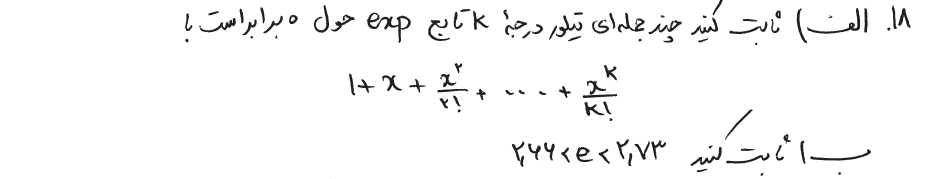 ۱۸. الف) ثابت کنید چند جمله‌ای تیلور درجهٔ k تابع exp حول ۰ برابر است با
1 + x + x^۲/۲! + .... + x^k/k!
ب) ثابت کنید ۲٫۶۶ < e < ۲٫۷۳